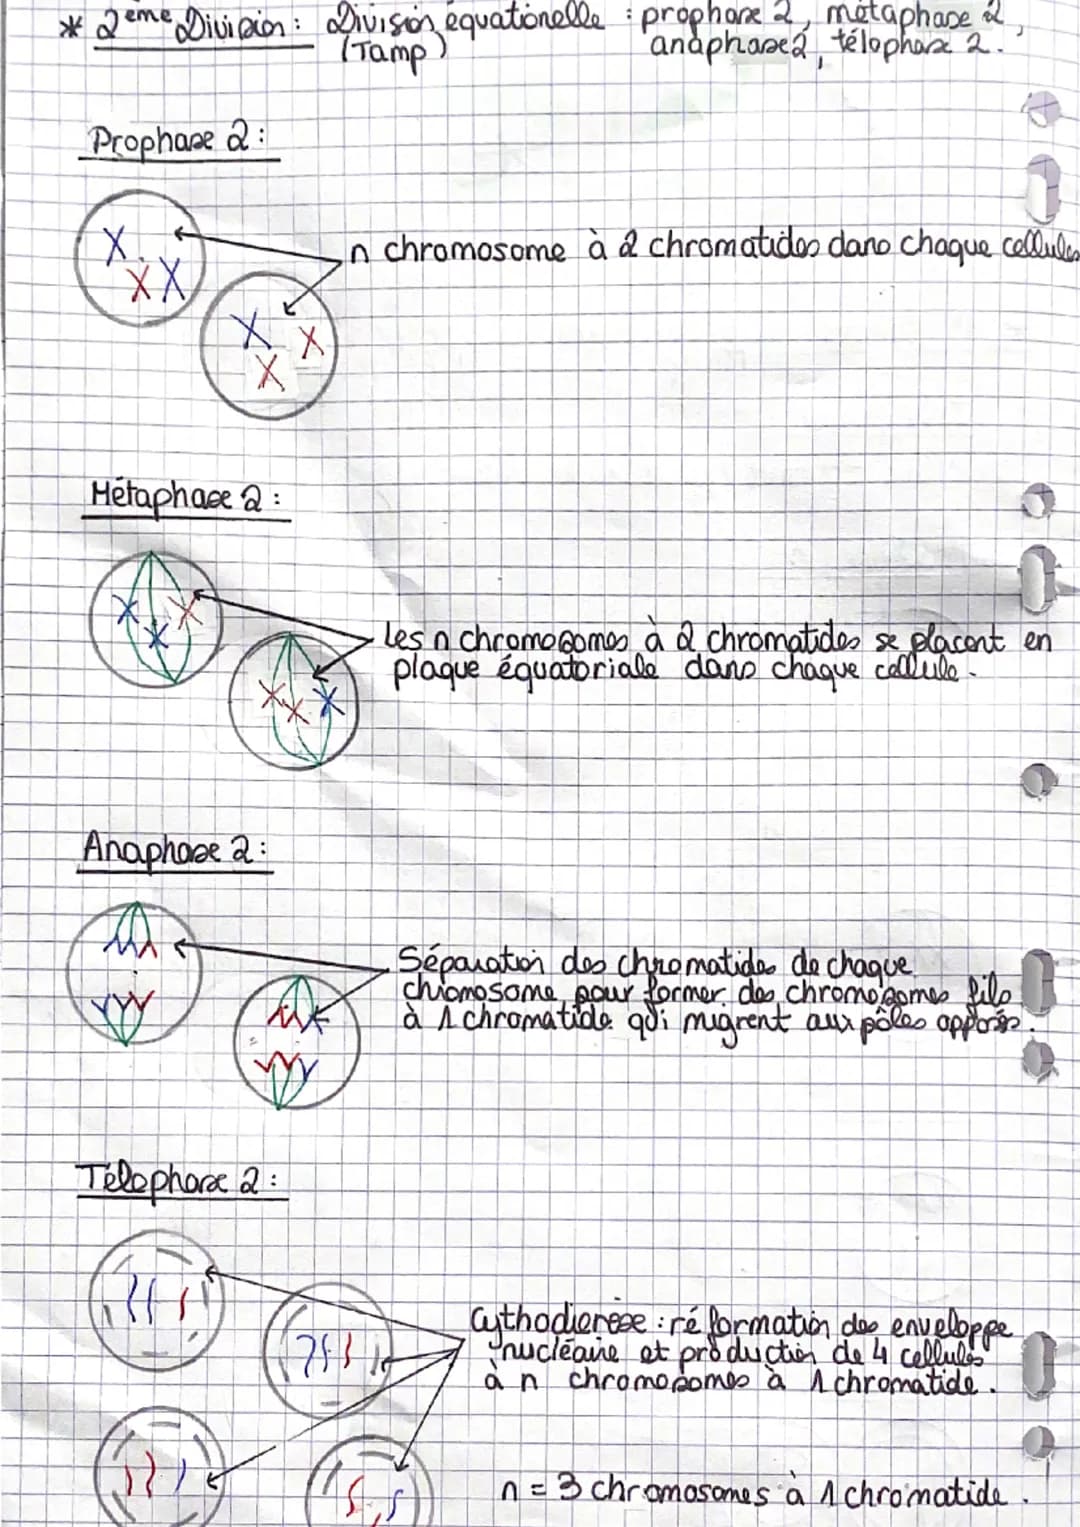 * 2ème Division : Division équationelle : prophase 2, métaphase 2,
(Tamp) anaphase2, télophase 2.
Prophase 2 :
n chromosome à 2 chromatides dans chaque cellules
Métaphase 2 :
Les n chromosomes à 2 chromatides se placent en
plaque équatoriale dans chaque cellule.
Anaphase 2 :
Séparation des chromatides de chaque
chromosome pour former des chromosomes fils
à 1 chromatide qui migrent aux pôles opposés.
Télophase 2 :
Cythodierèse : réformation des enveloppe
nucléaire et production de 4 cellules
à n chromosomes à 1 chromatide.
n = 3 chromosomes à 1 chromatide.